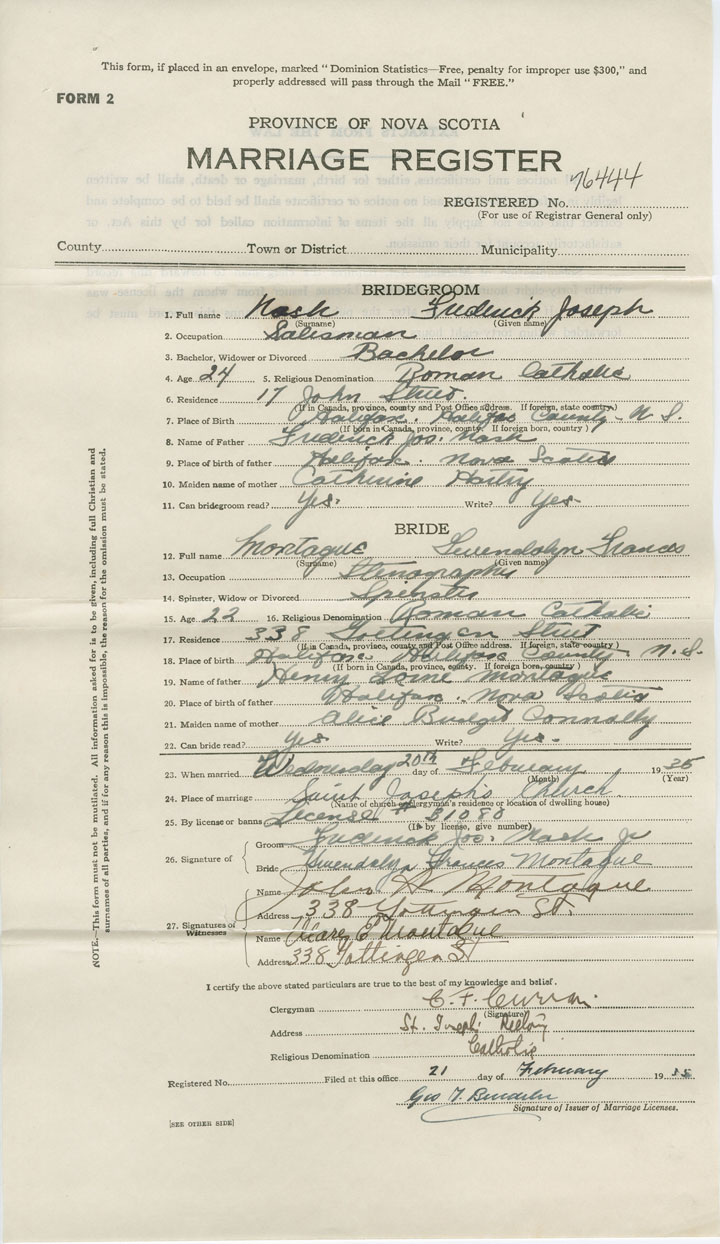 This form, if placed in an envelope, marked "Dominion Statistics—Free, penalty for improper use $300," and
properly addressed will pass through the Mail "FREE."
FORM 2
PROVINCE OF NOVA SCOTIA
MARRIAGE REGISTER
76444
REGISTERED No.
(For use of Registrar General only)
County Town or District Municipality
BRIDEGROOM
1. Full name Nash Frederick Joseph
(Surname) (Given name)
2. Occupation Salesman
3. Bachelor, Widower or Divorced Bachelor
4. Age 24 5. Religious Denomination Roman Catholic
6. Residence 17 John Street.
(If in Canada, province, county and Post Office address. If foreign, state country)
7. Place of Birth Halifax. Halifax County - N. S.
(If born in Canada, province, county. If foreign born, country)
8. Name of Father Frederick Jos. Nash
9. Place of birth of father Halifax. Nova Scotia
10. Maiden name of mother Catherine
11. Can bridegroom read? Yes. Write? Yes-
BRIDE
12. Full name Montague Gwendolyn Frances
(Surname) (Given name)
13. Occupation Stenographer
14. Spinster, Widow or Divorced Spinster
15. Age 22 16. Religious Denomination Roman Catholic
17. Residence 338 Gottingen Street
(If in Canada, province, county and Post Office address. If foreign, state country)
18. Place of birth Halifax Halifax County - N. S.
(If born in Canada, province, county. If foreign born, country)
19. Name of father Henry Lorne Montague
20. Place of birth of father Halifax. Nova Scotia
21. Maiden name of mother Alice Bridget Connolly
22. Can bride read? Yes Write? Yes.
23. When married Wednesday 20th day of February 1935
(Month) (Year)
24. Place of marriage Saint Joseph's Church
(Name of church or clergyman's residence or location of dwelling house)
25. By license or banns License # B1080
(If by license, give number)
26. Signature of
Groom Frederick Jos. Nash Jr
Bride Gwendolyn Frances Montague
27. Signatures of Witnesses
Name John H Montague
Address 338 Gottingen St.
Name Mary E Montague
Address 338 Gottingen St
I certify the above stated particulars are true to the best of my knowledge and belief.
Clergyman C. F. Curran
(Signature)
Address St. Joseph's Rectory
Religious Denomination Catholic
Registered No. Filed at this office 21 day of February 1935
Geo T.
Signature of Issuer of Marriage Licenses.
[SEE OTHER SIDE]
NOTE.—This form must not be mutilated. All information asked for is to be given, including full Christian and
surnames of all parties, and if for any reason this is impossible, the reason for the omission must be stated.